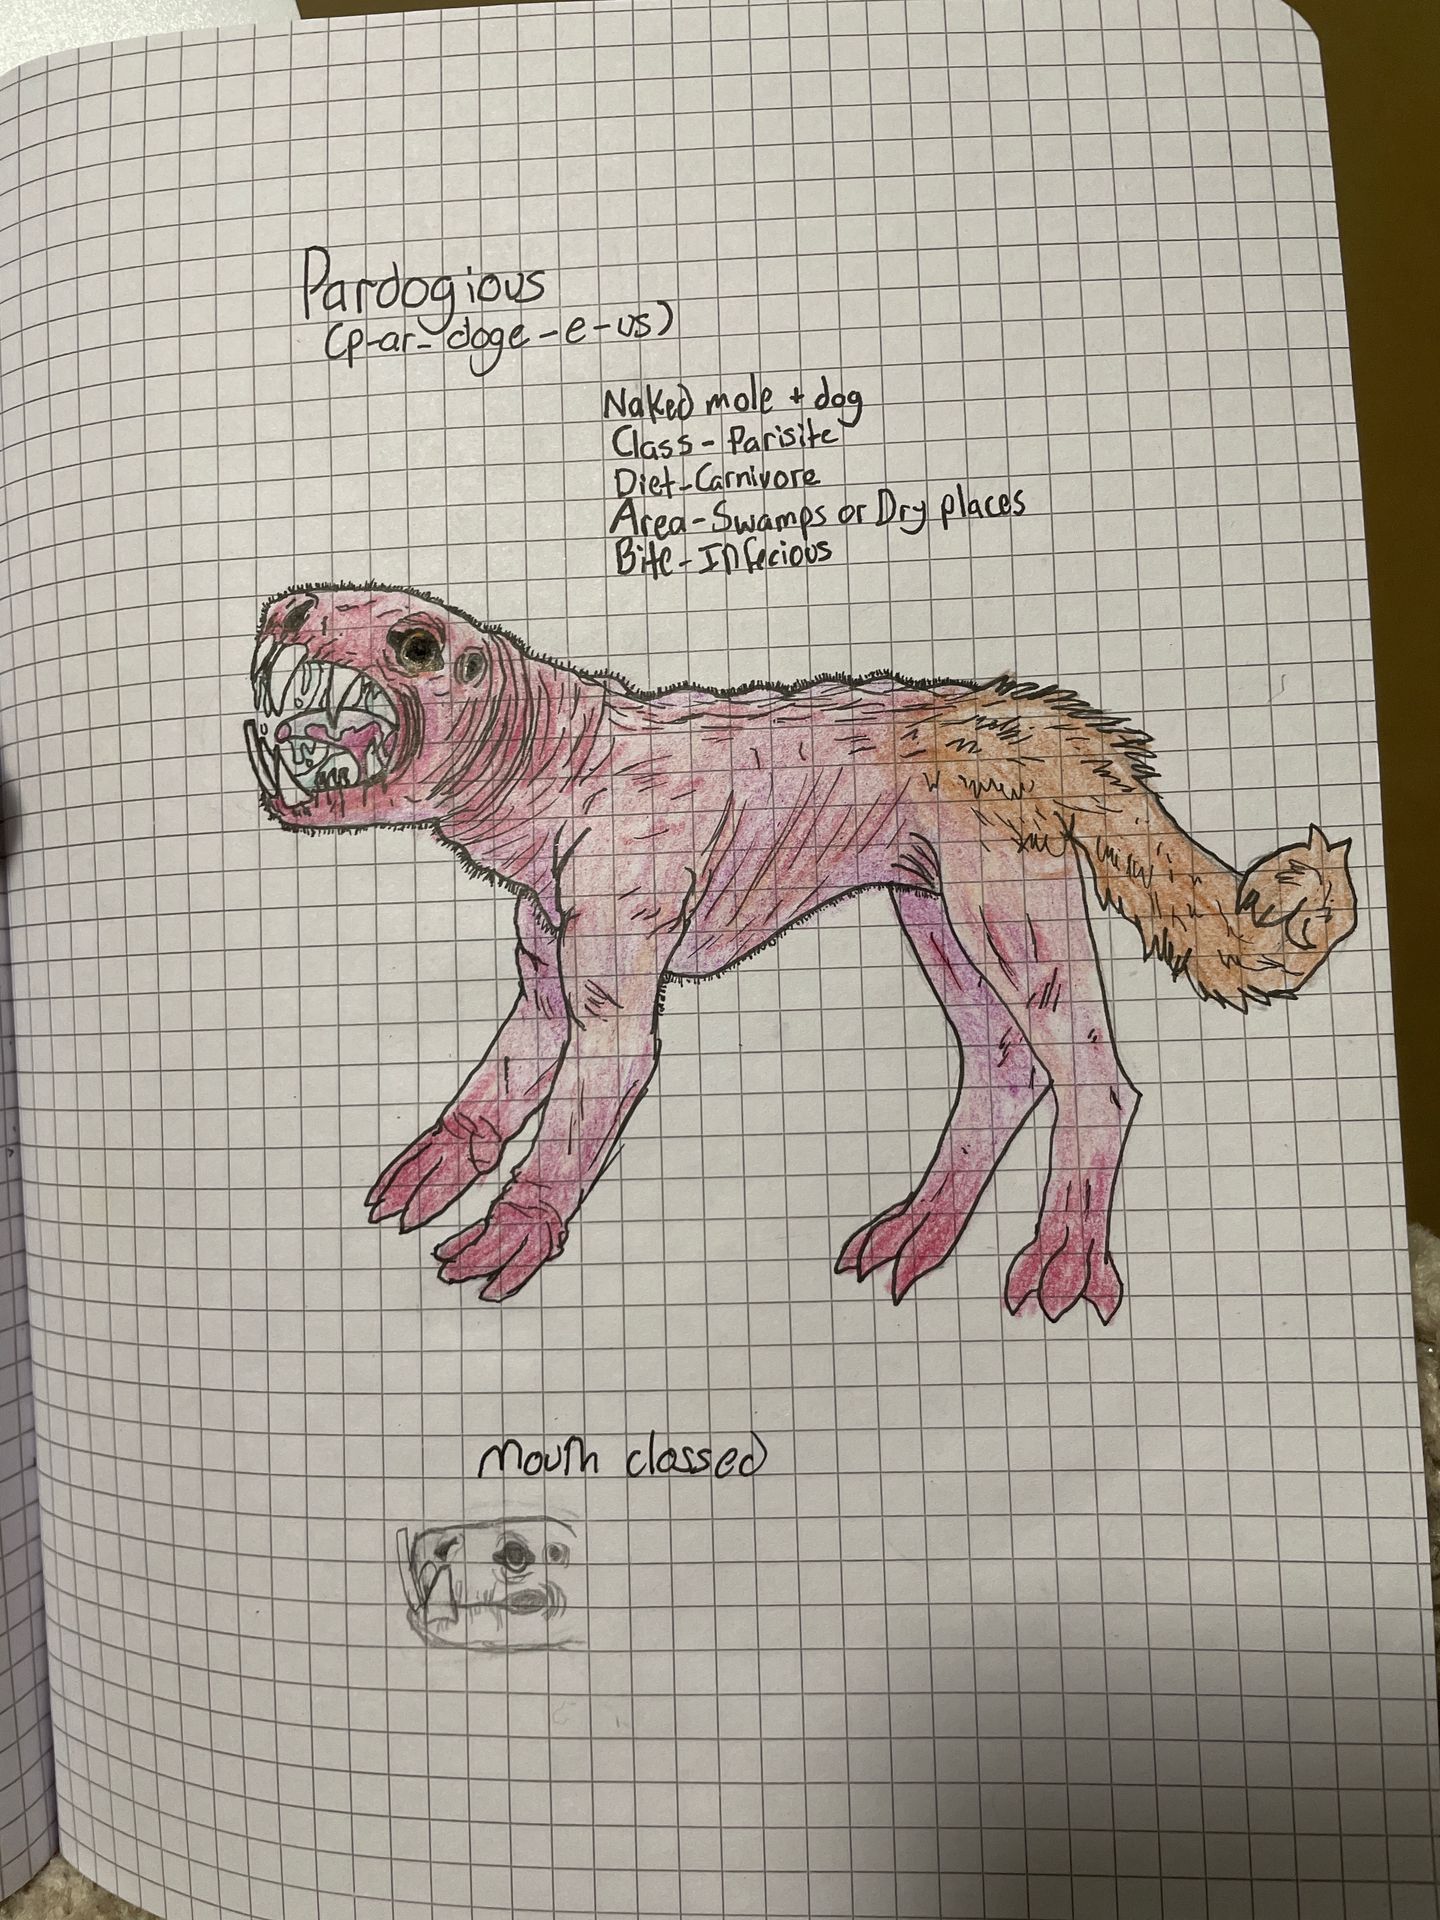 Pardogious
(p-ar-doge-e-us)
Naked mole + dog
Class-Parisite
Diet-Carnivore
Area-Swamps or Dry places
Bite-Infecious
Mouth classed